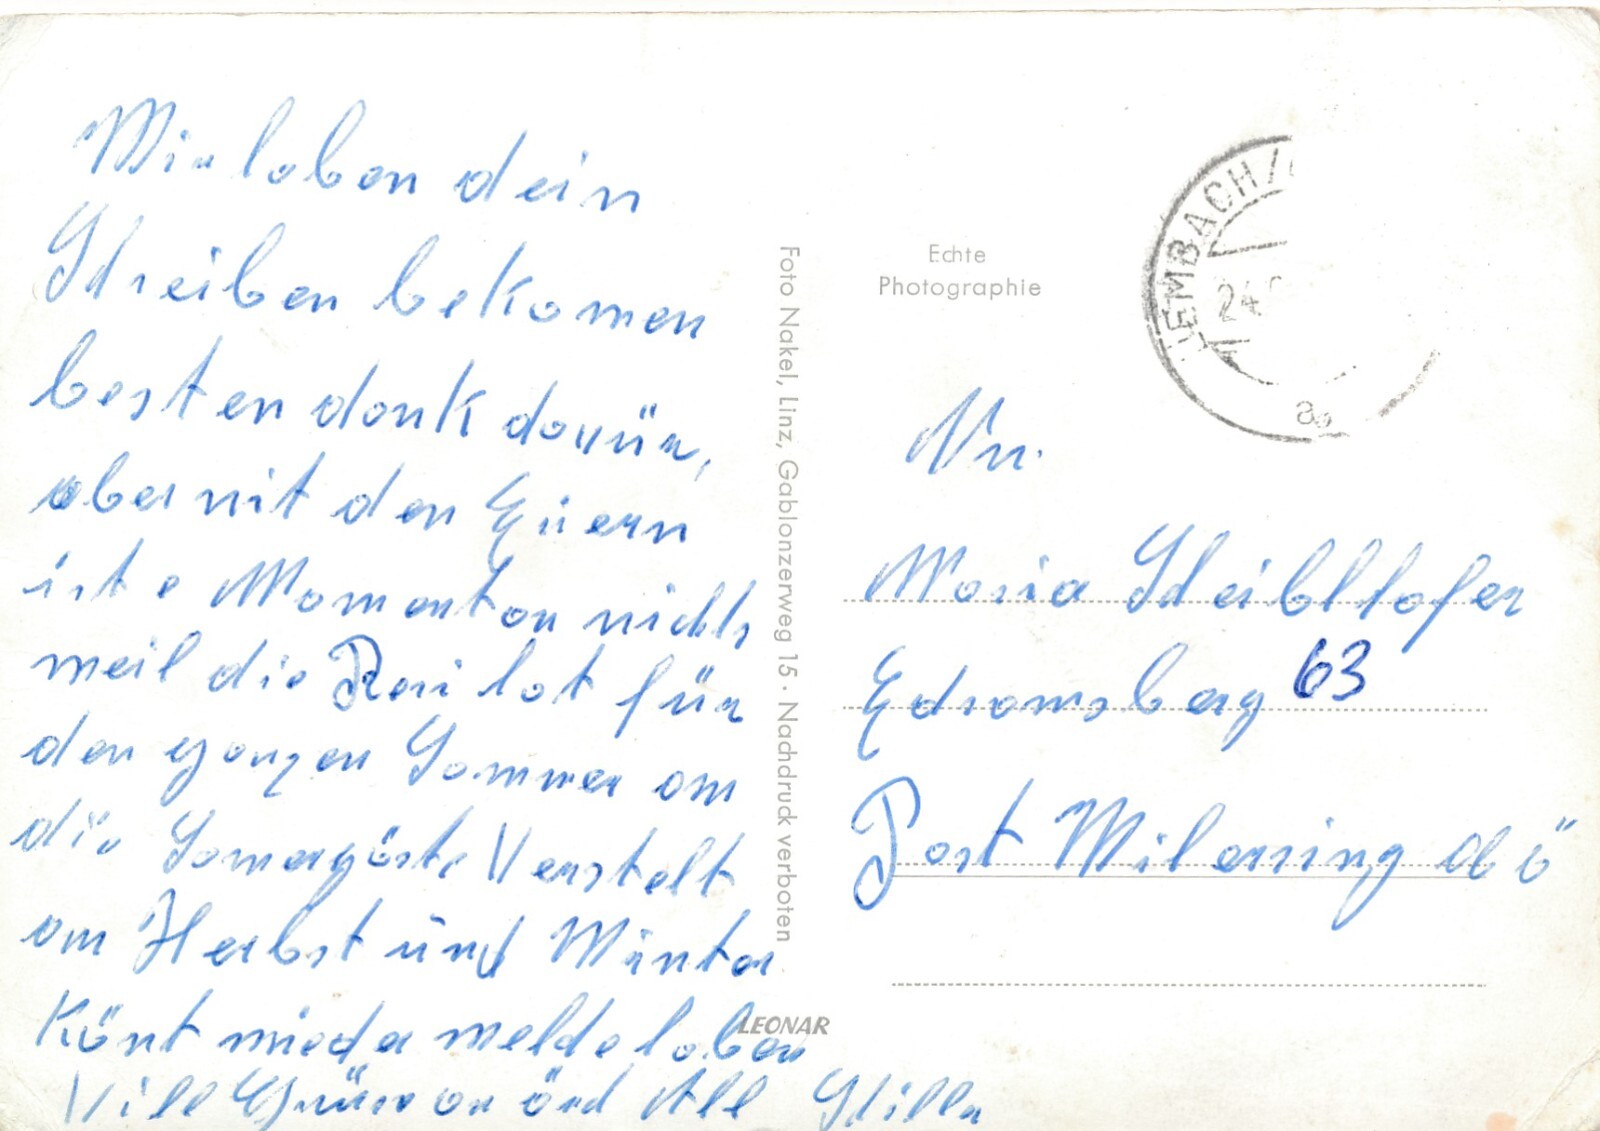 Wir haben dein
Schreiben bekomen
besten dank davür,
aber mit den Eüern
ist e Momenton nichts
weil die Resi hat für
den ganzen Sommer am
die Somergäste Verstelt
am Herbst und Winter
Könt wieder melde haben
Vill Grüsse an öich All
Echte
Photographie
LEMBACH/
24.
a
Foto Nakel, Linz, Gablonzerweg 15 · Nachdruck verboten
LEONAR
An.
Maria Scheiblhofer
Edramsberg 63
Post Wilering ob ö